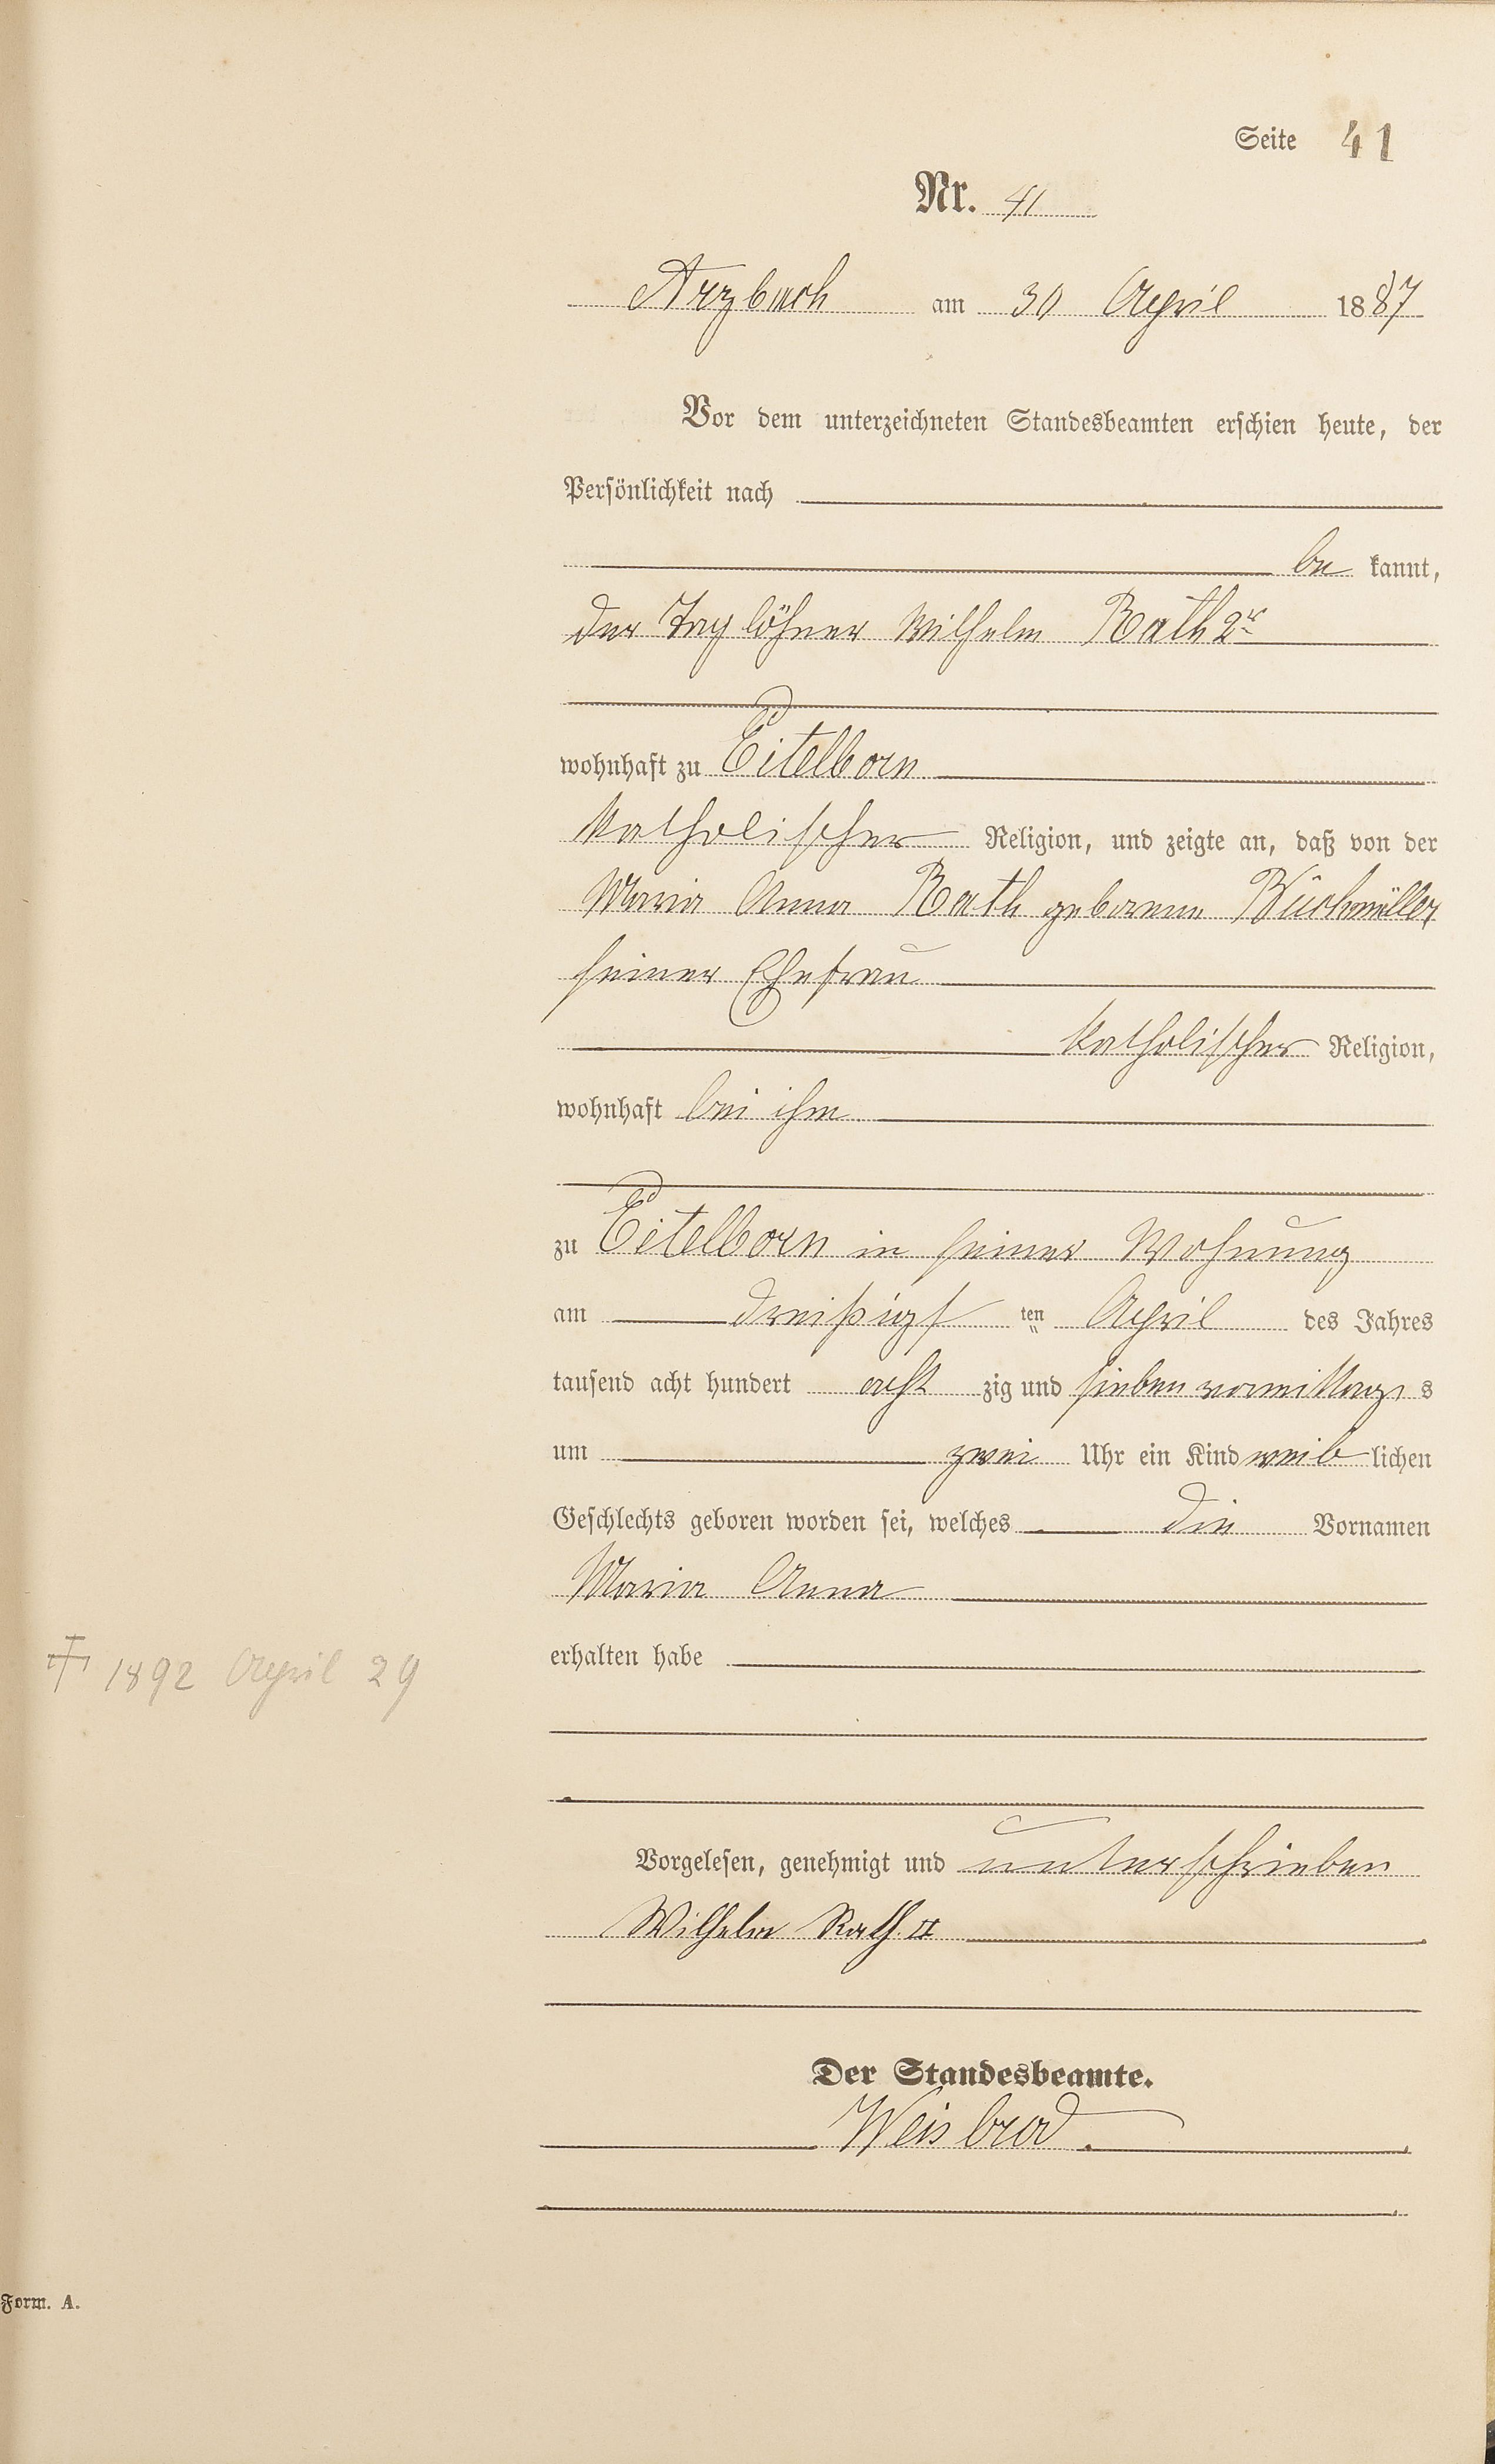 Seite 41
Nr. 41
Arzbach am 30 April 1887
Vor dem unterzeichneten Standesbeamten erschien heute, der
Persönlichkeit nach
be kannt,
der Taglöhner Wilhelm Rath 2r
wohnhaft zu Eitelborn
katholischer Religion, und zeigte an, daß von der
Maria Anna Rath geborene Büchmüller
seiner Ehefrau
katholischer Religion,
wohnhaft bei ihm
zu Eitelborn in seiner Wohnung
am dreißigs ten April des Jahres
tausend acht hundert acht zig und sieben vormittags s
um zwei Uhr ein Kind weib lichen
Geschlechts geboren worden sei, welches die Vornamen
Maria Anna
† 1892 April 29
erhalten habe
Vorgelesen, genehmigt und unterschrieben
Wilhelm Rath. II
Der Standesbeamte.
Weisbrod.
Form. A.